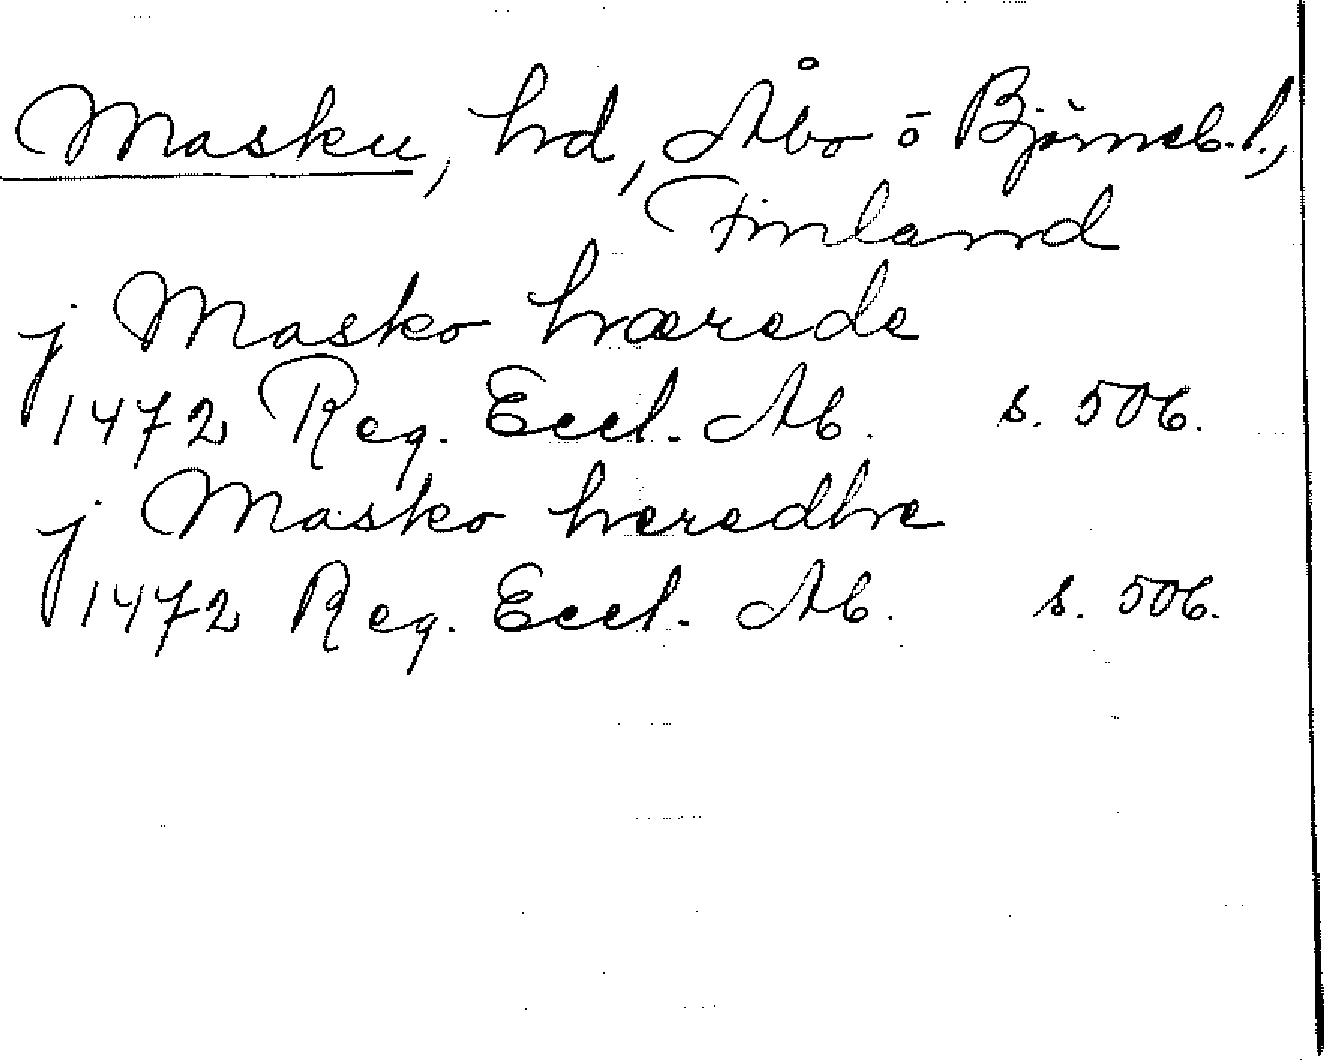 Masku, hd, Åbo o Björneb. l.,
Finland
j Masko hærede
1472 Reg. Eccl. Ab. s. 506.
j Masko heredhe
1472 Reg. Eccl. Ab. s. 506.